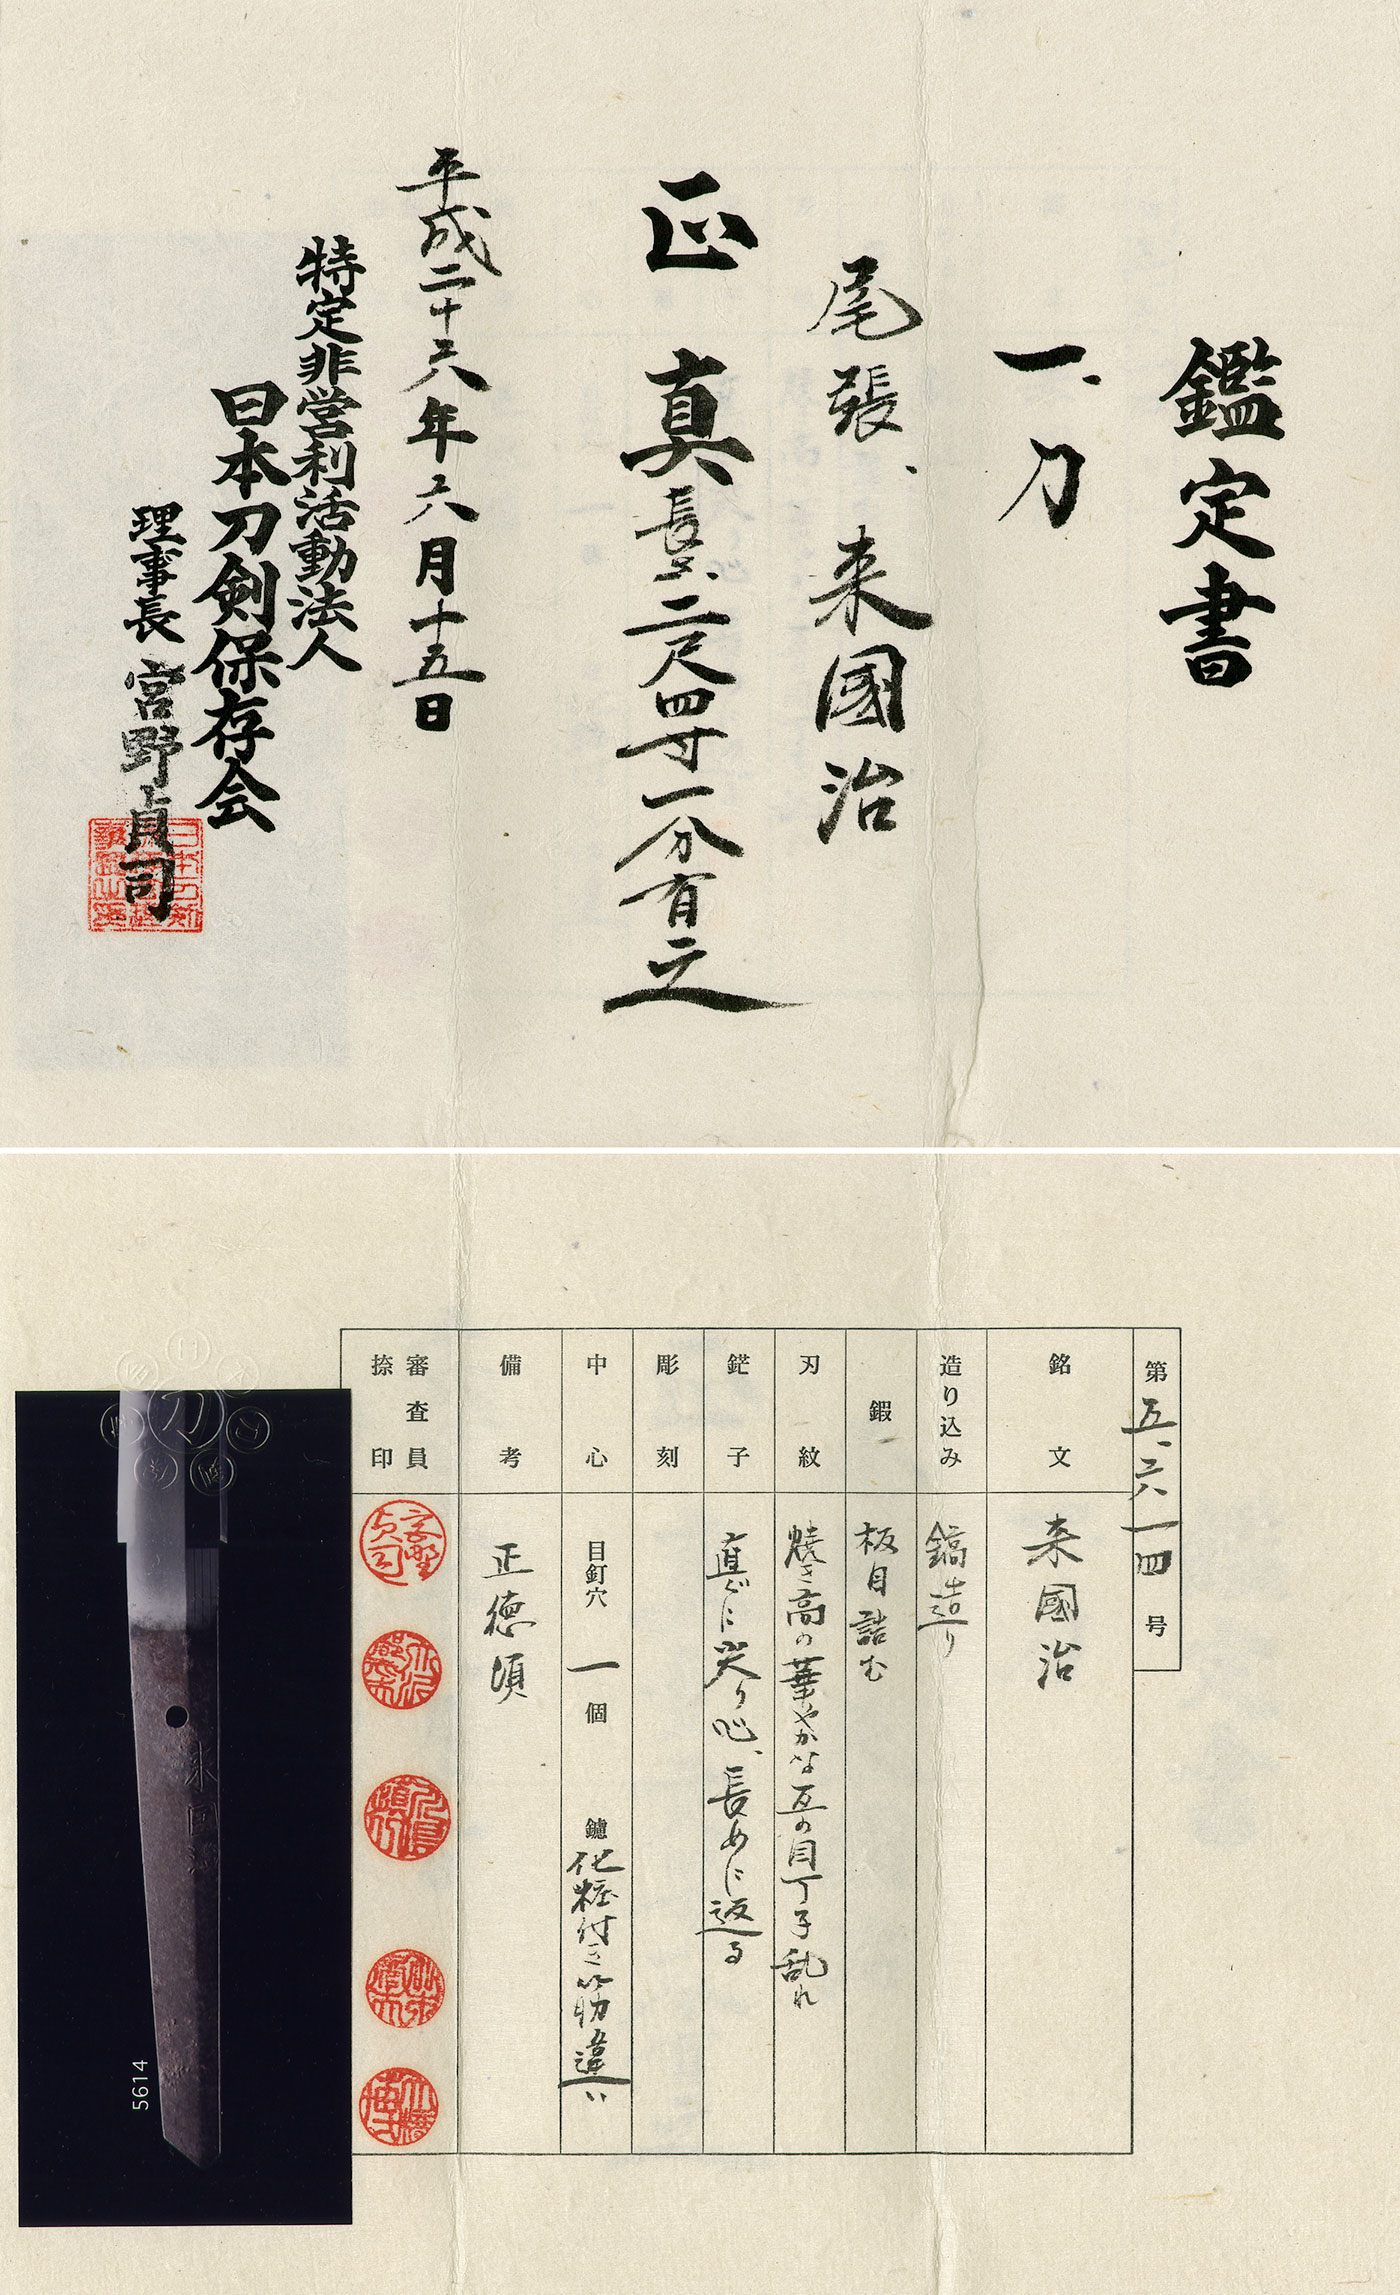 鑑定書
一、刀
尾張、来國治
正真長サ、二尺四寸一分有之
平成二十六年六月十五日
特定非営利活動法人
日本刀剣保存会
理事長 宮野貞司
第五、六一四号
銘文 来國治
造り込み 鎬造り
鍜 板目詰む
刃紋 焼き高の華やかな互の目丁子乱れ
鋩子 直ぐに尖り心、長めに返る
彫刻
中心 目釘穴 一 個 鑢 化粧付き筋違い
備考 正徳頃
審査員
捺印
来国治
5614